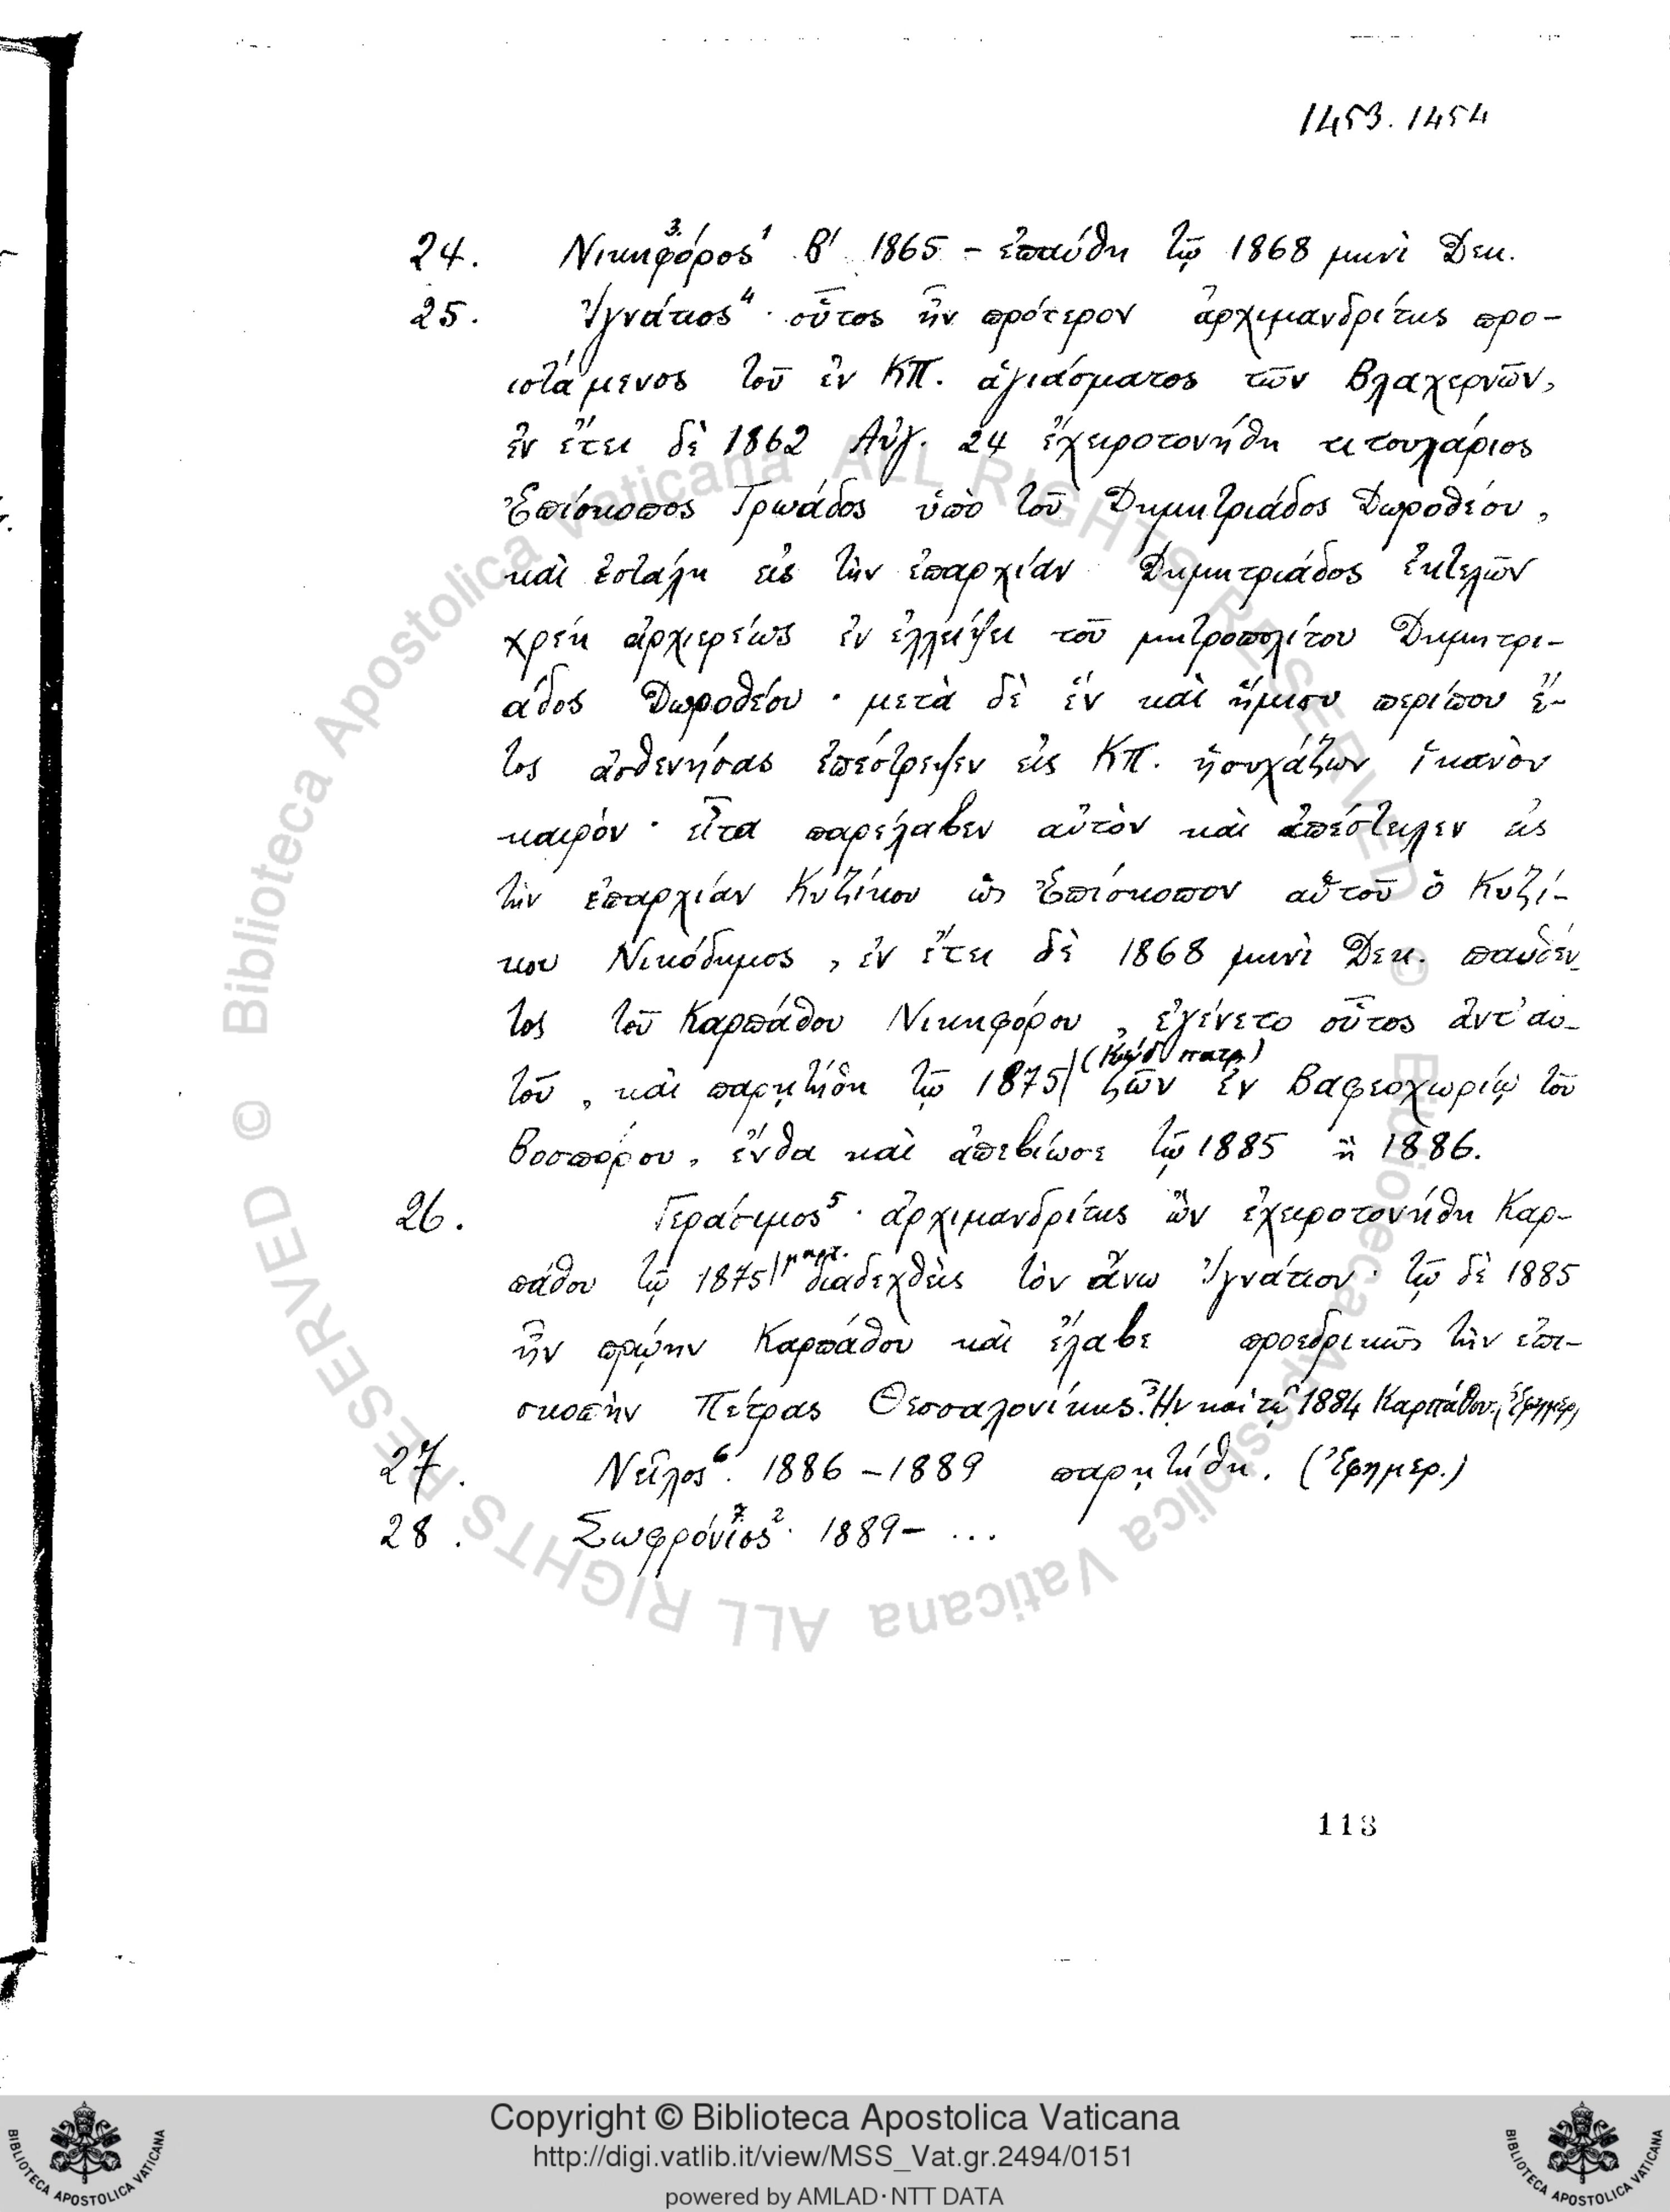 1453. 1454
24. Νικηφόρος³ ¹ Β′ 1865 – ἐπαύθη τῷ 1868 μηνὶ Δεκ.
25. Ἰγνάτιος⁴ · οὗτος ἦν πρότερον ἀρχιμανδρίτης προ-
ϊστάμενος τοῦ ἐν ΚΠ. ἁγιάσματος τῶν Βλαχερνῶν,
ἐν ἔτει δὲ 1862 Αὐγ. 24 ἐχειροτονήθη τιτουλάριος
Ἐπίσκοπος Τρωάδος ὑπὸ τοῦ Δημητριάδος Δωροθέου,
καὶ ἐστάλη εἰς τὴν ἐπαρχίαν Δημητριάδος ἐκτελῶν
χρέη ἀρχιερέως ἐν ἐλλείψει τοῦ μητροπολίτου Δημητρι-
άδος Δωροθέου · μετὰ δὲ ἓν καὶ ἥμισυ περίπου ἔ-
τος ἀσθενήσας ἐπέστρεψεν εἰς ΚΠ. ἡσυχάζων ἱκανὸν
καιρόν · εἶτα παρέλαβεν αὐτὸν καὶ ἀπέστειλεν εἰς
τὴν ἐπαρχίαν Κυζίκου ὡς Ἐπίσκοπον αὑτοῦ ὁ Κυζί-
κου Νικόδημος, ἐν ἔτει δὲ 1868 μηνὶ Δεκ. παυθέν-
τος τοῦ Καρπάθου Νικηφόρου, ἐγένετο οὗτος ἀντ' αὐ-
τοῦ, καὶ παρῃτήθη τῷ 1875 (Κώδ. πατρ.) ζῶν ἐν Βαφεοχωρίῳ τοῦ
Βοσπόρου, ἔνθα καὶ ἀπεβίωσε τῷ 1885 ἢ 1886.
26. Γεράσιμος⁵ · ἀρχιμανδρίτης ὢν ἐχειροτονήθη Καρ-
πάθου τῷ 1875 μαρτ. διαδεχθεὶς τὸν ἄνω Ἰγνάτιον · τῷ δὲ 1885
ἦν πρῴην Καρπάθου καὶ ἔλαβε προεδρικῶς τὴν ἐπι-
σκοπὴν Πέτρας Θεσσαλονίκης. Ἦν καὶ τῷ 1884 Καρπάθου, (Ἐφημερ.)
27. Νεῖλος⁶. 1886 – 1889 παρῃτήθη. (Ἐφημερ.)
28. Σωφρόνιος⁷ ² · 1889 – ...
113
© Biblioteca Apostolica Vaticana ALL RIGHTS RESERVED © Biblioteca Apostolica Vaticana ALL RIGHTS RESERVED
BIBLIOTECA APOSTOLICA VATICANA
Copyright © Biblioteca Apostolica Vaticana
http://digi.vatlib.it/view/MSS_Vat.gr.2494/0151
powered by AMLAD·NTT DATA
BIBLIOTECA APOSTOLICA VATICANA